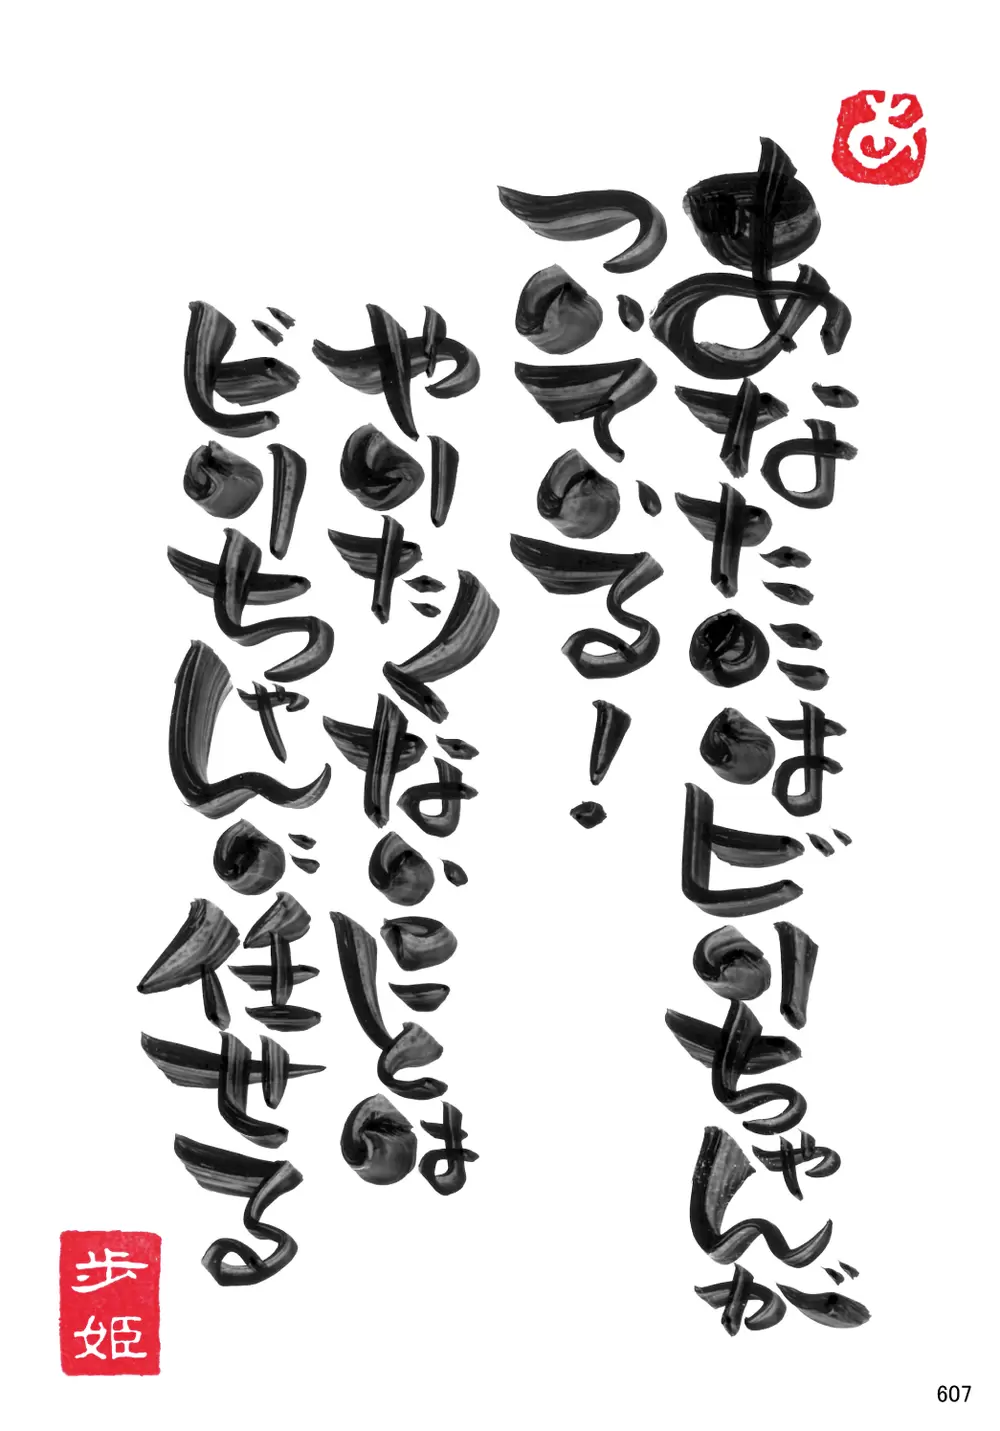 あ
あなたにはビリちゃんが
ついている!
やりたくないことは
ビリちゃんに任せる
歩姫
607